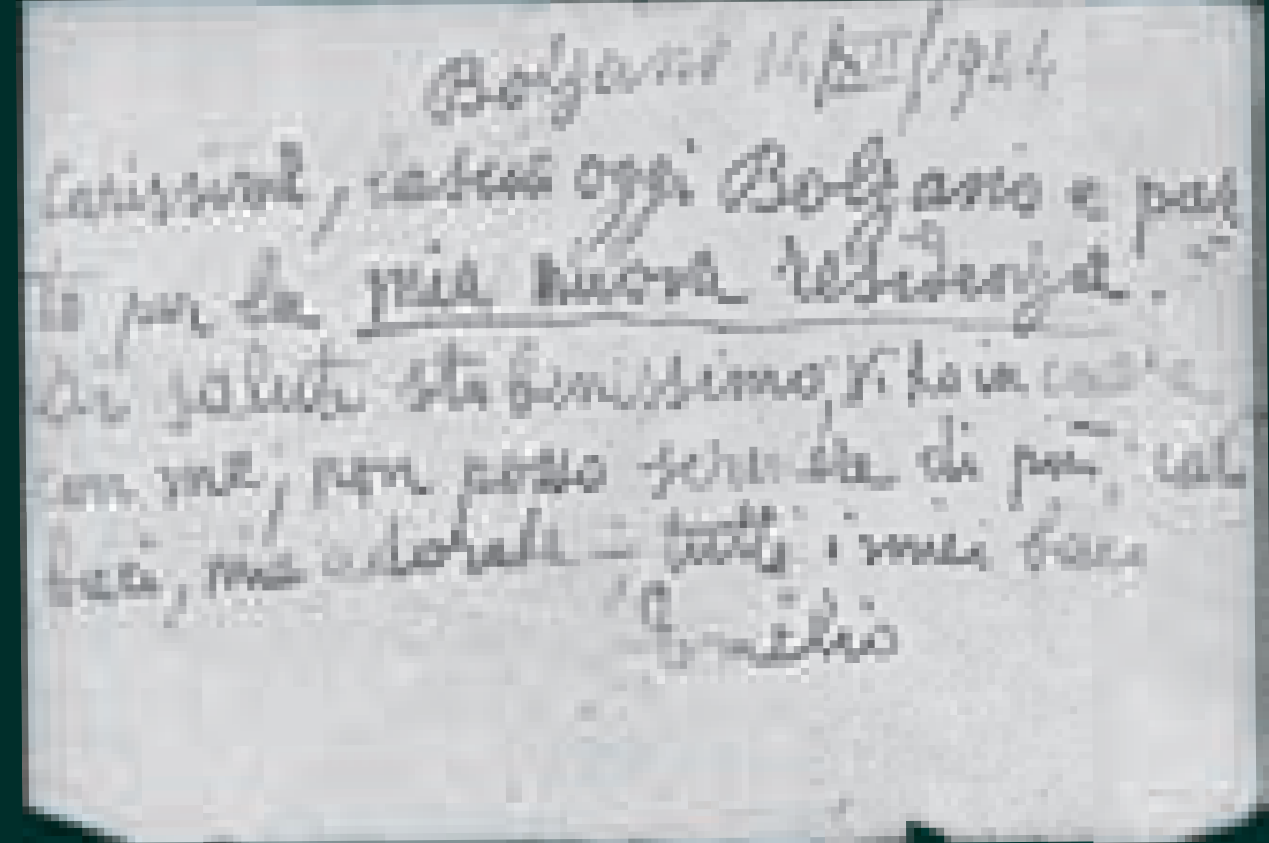 Bolzano 14/XII/1944
Carissime, lascio oggi Bolzano e par
to per la mia nuova residenza.
Di salute sto benissimo, vi ho in
con me, non posso scrivere di più,
baci, mie adorate - tutti i miei baci
Emilio